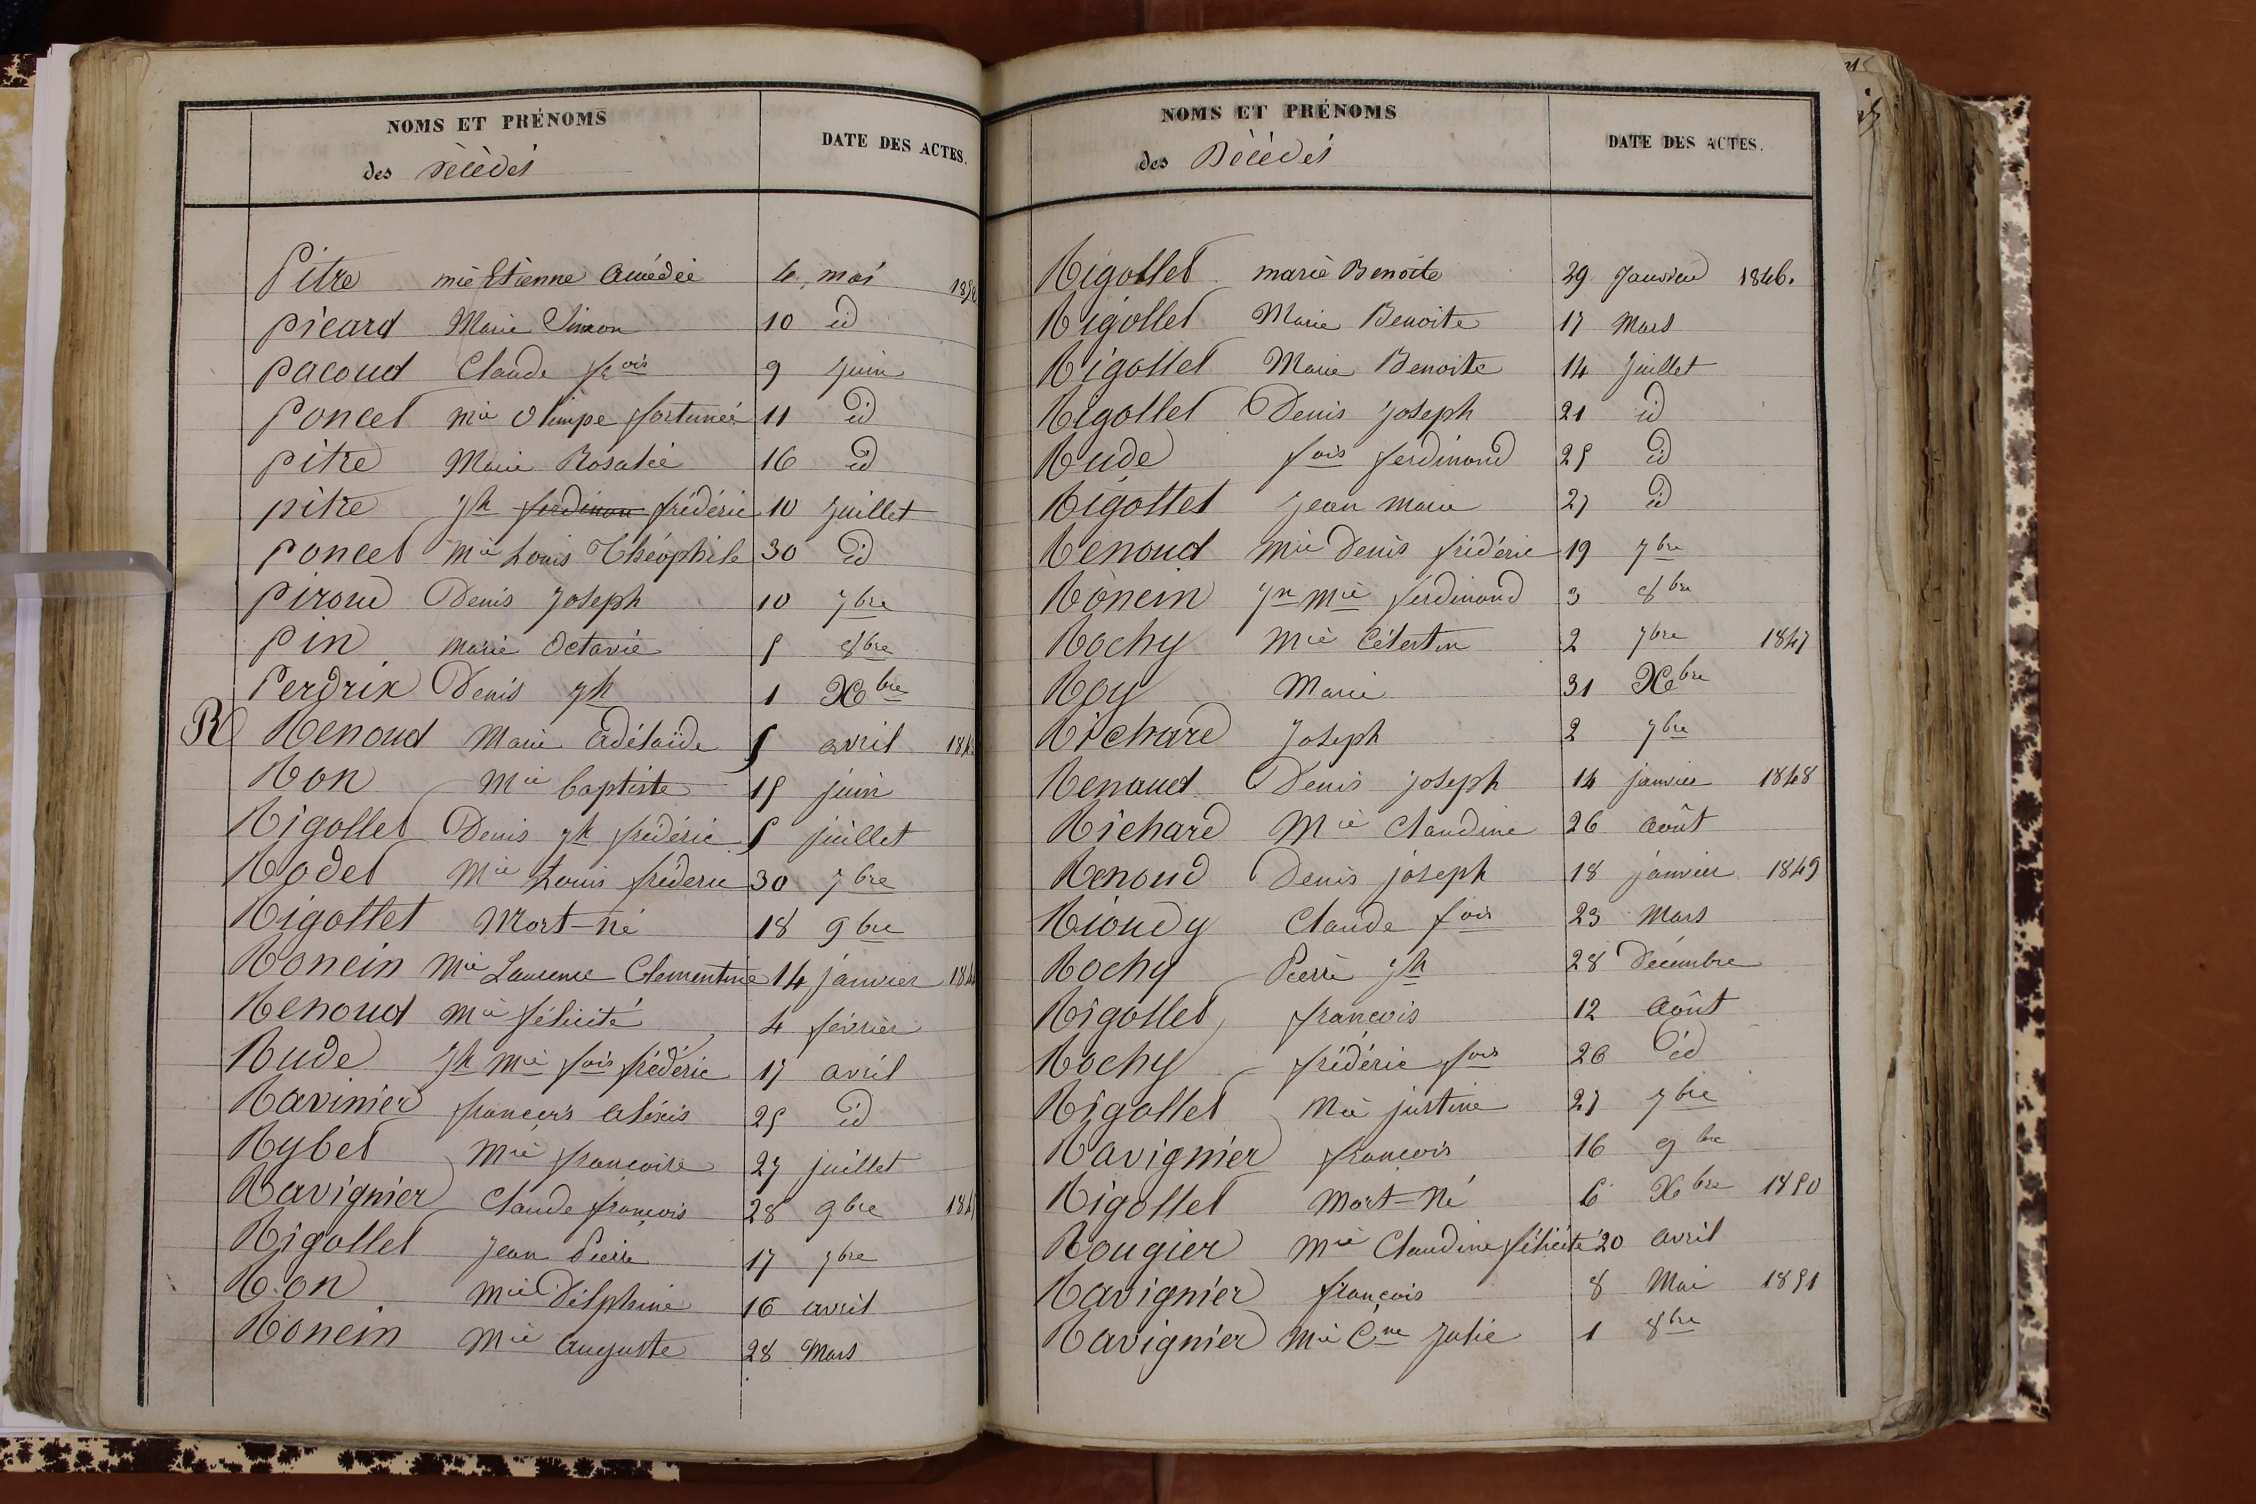 NOMS ET PRÉNOMS
DATE DES ACTES.
des Décédés
Pitre mie Etienne Amédée 4 mai
Picard Marie Simon 10 id
Pacoud Claude fcois 9 juin
Poncet mie Olimpe fortunée 11 id
Pitre Marie Rosalie 16 id
Pitre Jh ferdinan frédéric 10 juillet
Poncet Mie Louis Théophile 30 id
Piroud Denis Joseph 10 7bre
Pin marie Octavie 5 8bre
Perdrix Denis Jh 1 Xbre
R Renoud Marie Adélaïde 5 avril
Ron Mie baptiste 15 juin
Rigollet Denis Jh frédéric 5 juillet
Rodet Mie Louis fréderic 30 7bre
Rigollet Mort-né 18 9bre
Ronein Mie Laurence Clementine 14 janvier
Renoud Mie félicité 4 février
Rude Jh Mie fois frédéric 17 avril
Ravinier francois Aléxis 25 id
Rybet Mie francoise 27 juillet
Ravignier Claude francois 28 9bre
Rigollet Jean Pierre 17 7bre
Ron mie Délphine 16 avril
Ronein Mie Auguste 28 Mars
NOMS ET PRÉNOMS
DATE DES ACTES.
des Décédés
Rigollet marie Benoite 29 Janvier 1846.
Rigollet Marie Benoite 17 Mars
Rigollet Marie Benoite 14 Juillet
Rigollet Denis Joseph 21 id
Rude fois ferdinand 25 id
Rigollet Jean marie 27 id
Renoud Mie Denis frédéric 19 7bre
Ronein Jn Mie ferdinand 3 8bre
Rochy Mie Célestin 2 7bre 1847
Roy Marie 31 Xbre
Richard Joseph 2 7bre
Renaud Denis Joseph 14 janvier 1848
Richard Mie Claudine 26 Août
Renoud Denis joseph 18 janvier 1849
Rioudy Claude fois 23 Mars
Rochy Pierre Jh 28 Décembre
Rigollet francois 12 Août
Rochy frédéric fois 26 id
Rigollet Mie justine 27 7bre
Ravignier francois 16 9bre
Rigollet Mort-Né 6 Xbre 1850
Rougier Mie Claudine félicité 20 avril
Ravignier francois 8 Mai 1851
Ravignier Mie Cne Julie 1 8bre